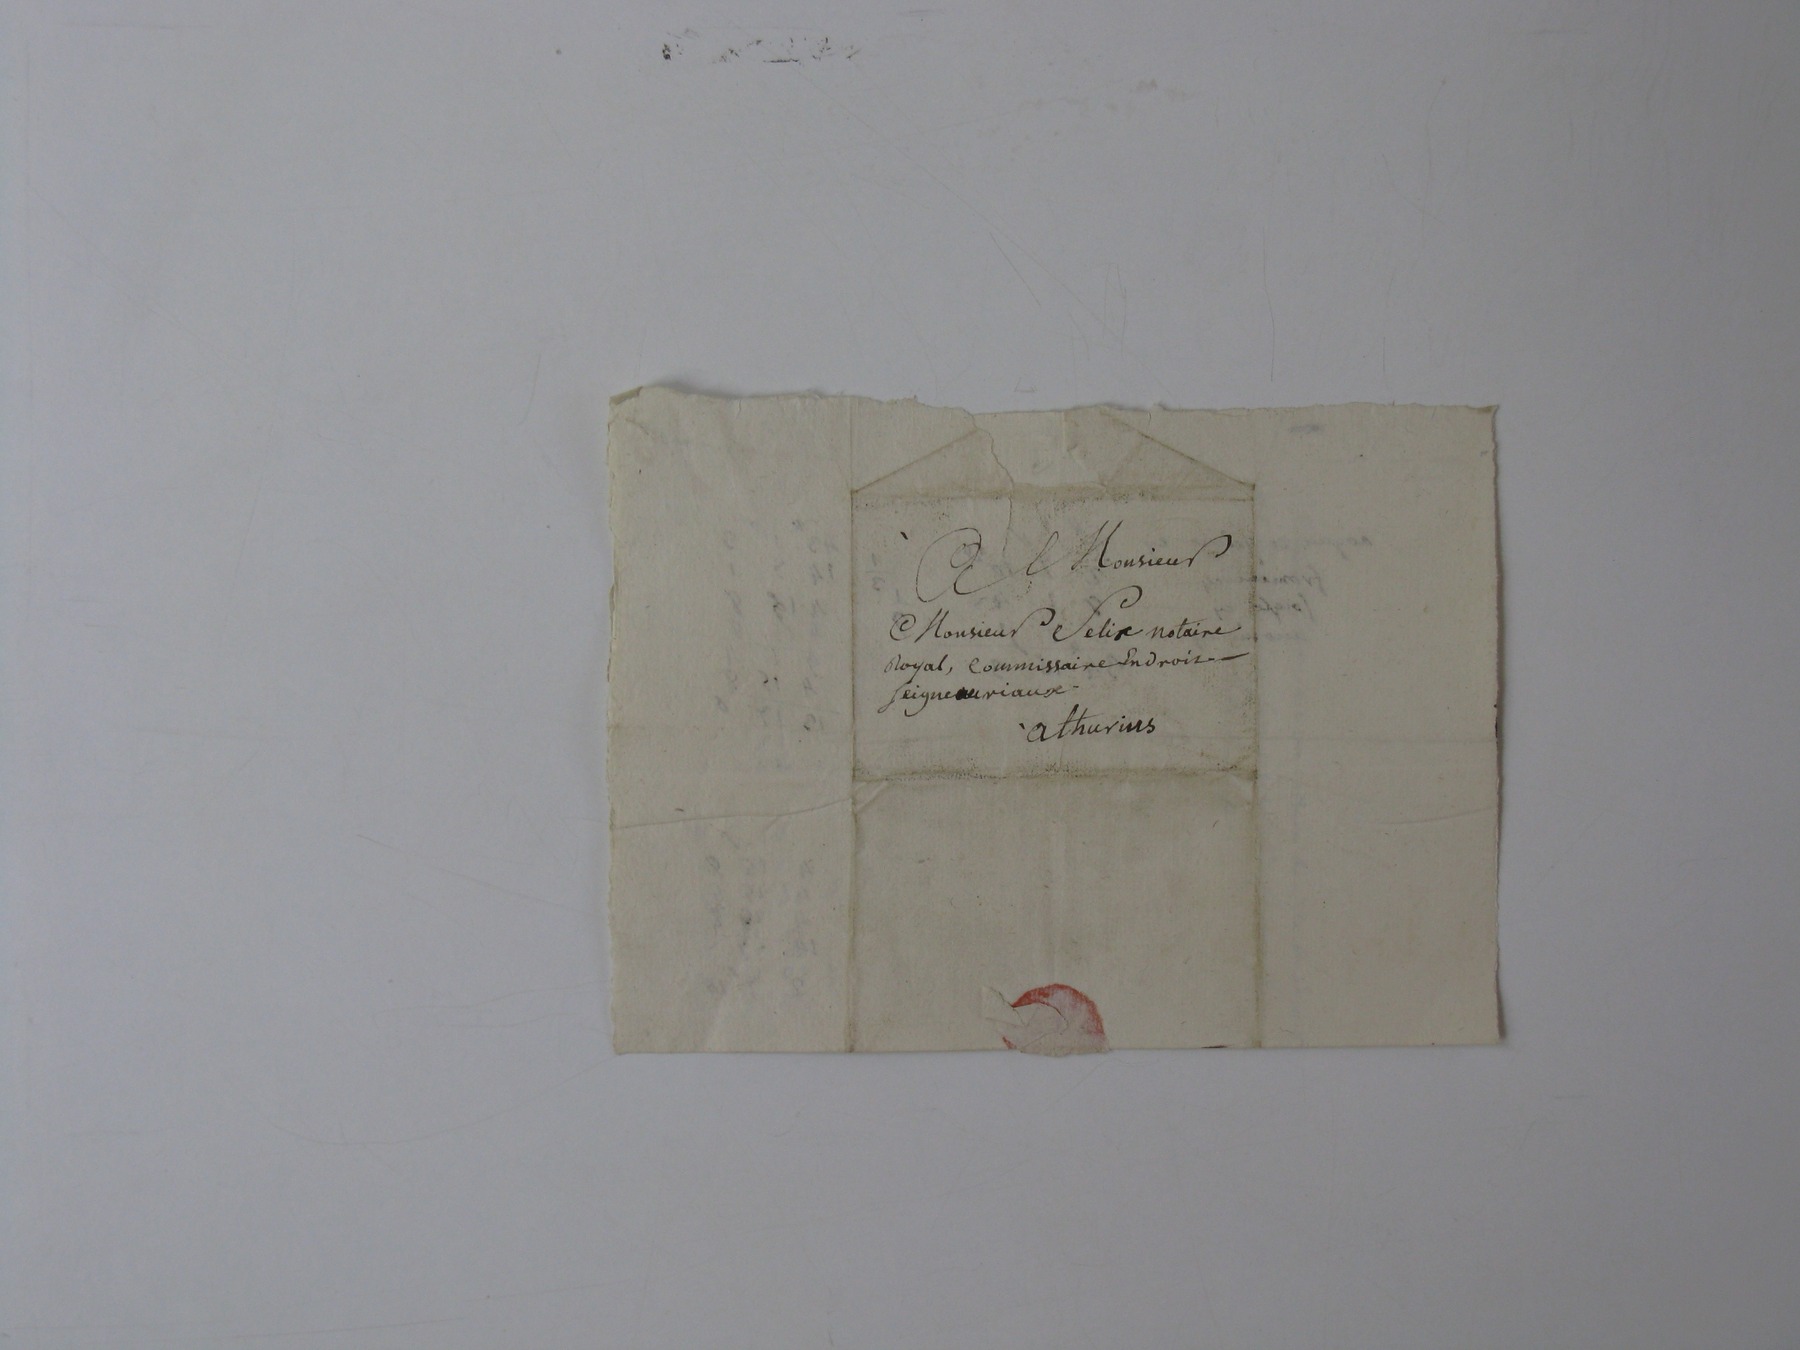 A Monsieur
Monsieur Felix notaire
Royal, Commissaire Endroit
seigneuriaux
à thurins